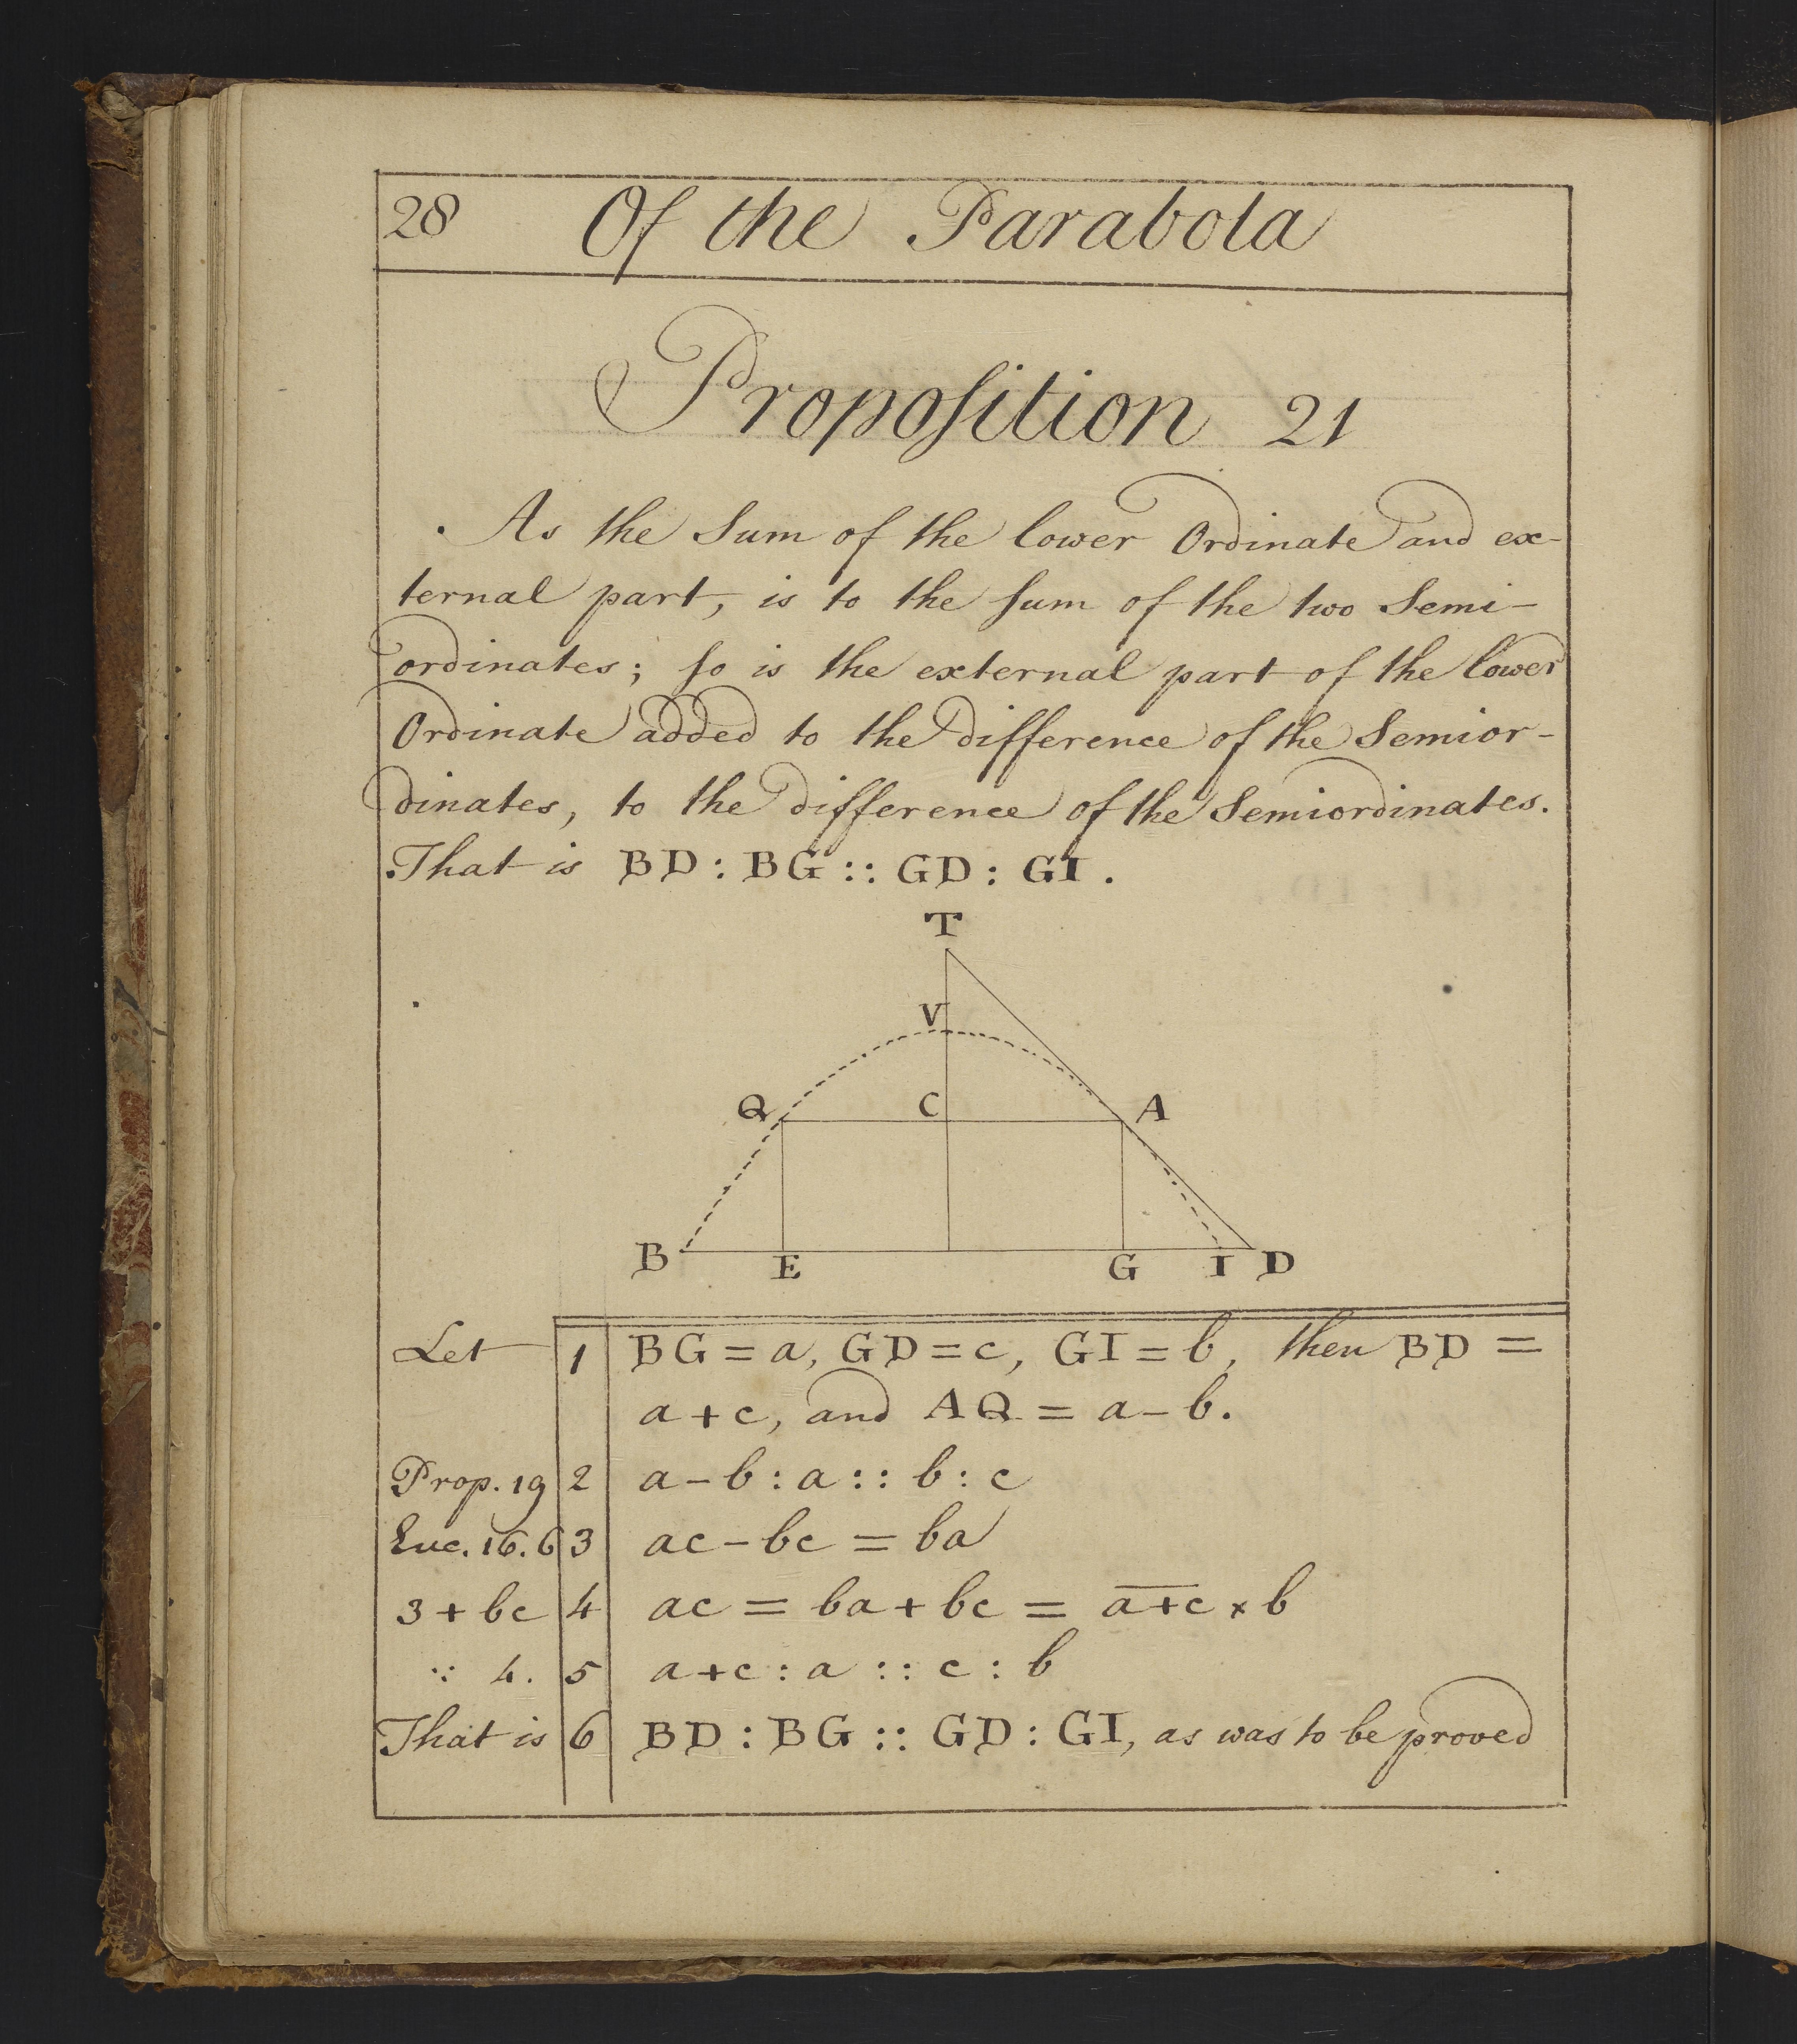 28 Of the Parabola
Propoſition 21
As the Sum of the lower Ordinate and ex-
ternal part, is to the ſum of the two Semi-
ordinates; ſo is the external part of the lower
Ordinate added to the difference of the Semior-
dinates, to the difference of the Semiordinates.
That is BD : BG :: GD : GI .
T
V
Q C A
B E G I D
Let 1 BG = a, GD = c, GI = b, then BD =
a + c, and AQ = a - b.
Prop. 19 2 a - b : a :: b : c
Euc. 16. 6 3 ac - bc = ba
3 + bc 4 ac = ba + bc = a̅+̅c̅ × b
∵ 4. 5 a + c : a :: c : b
That is 6 BD : BG :: GD : GI, as was to be proved